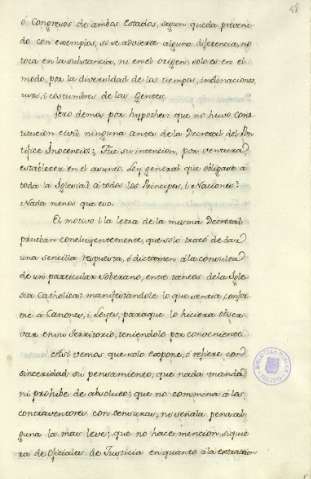 58
o Congresos de ambos Estados, segun queda preveni-
do con exemplos, si se advierte alguna diferencia, no
toca en la substancia, ni en el origen, solo es en el
modo, por la diversidad de los tiempos, inclinaciones,
usos, i costumbres de las Gentes.
Pero demos por hypothesi que no huvo Cons-
titucion civil ninguna antes de la Decretal del Pon-
tifice Inocencio; Fue su intencion, por ventura,
establecer en el asunto Ley general que obligase a
toda la Iglesia? a todos los Principes, i Naciones?
Nada menos que eso.
El motivo i la letra de la misma Decretal
prueban concluyentemente, que solo trató de dar
una sencilla respuesta, o dictamen á la consulta
de un particular Soberano, entre tantos de la Igle-
sia Catholica: manifestandole lo que sentia, confor-
me á Canones, i Leyes, para que lo hiciera obser-
var en su territorio, teniendolo por conveniente.
vemos que solo expone, o refiere con
sinceridad su pensamiento; que nada manda
ni prohibe de absoluto; que no commina á los
contraventores con censuras, no señala pena al-
guna la mas leve; que no hace mencion siquie-
ra de Oficiales de Justicia en quanto á la extraccion